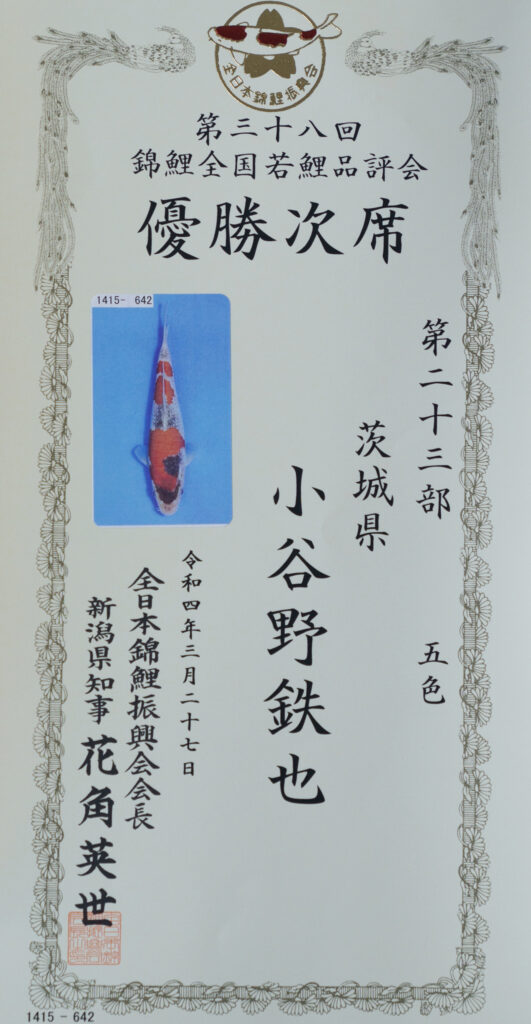 全日本錦鯉振興会
第三十八回
錦鯉全国若鯉品評会
優勝次席
第二十三部 五色
茨城県
小谷野鉄也
1415- 642
令和四年三月二十七日
全日本錦鯉振興会会長
新潟県知事 花角英世
1415 - 642